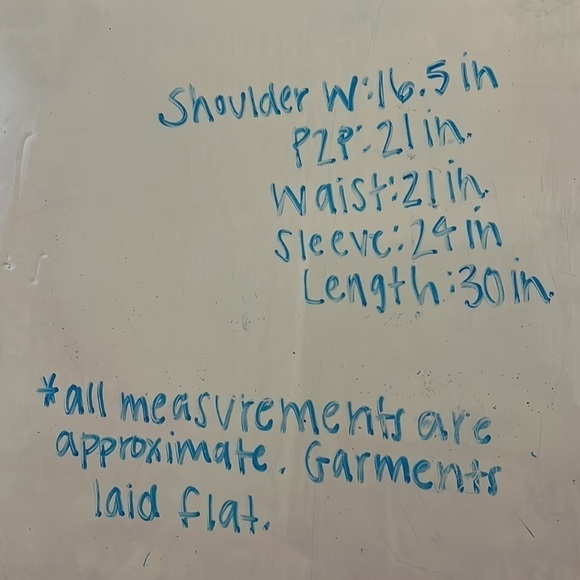 Shoulder W:16.5 in
P2P: 21 in.
Waist: 21 in.
Sleeve: 24 in
Length: 30 in.
*all measurements are
approximate. Garments
laid flat.